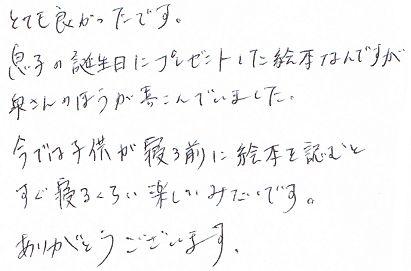 とても良かったです。
息子の誕生日にプレゼントした絵本なんですが
奥さんのほうが喜こんでいました。
今では子供が寝る前に絵本を読むと
すぐ寝るくらい楽しいみたいです。
ありがとうございます。